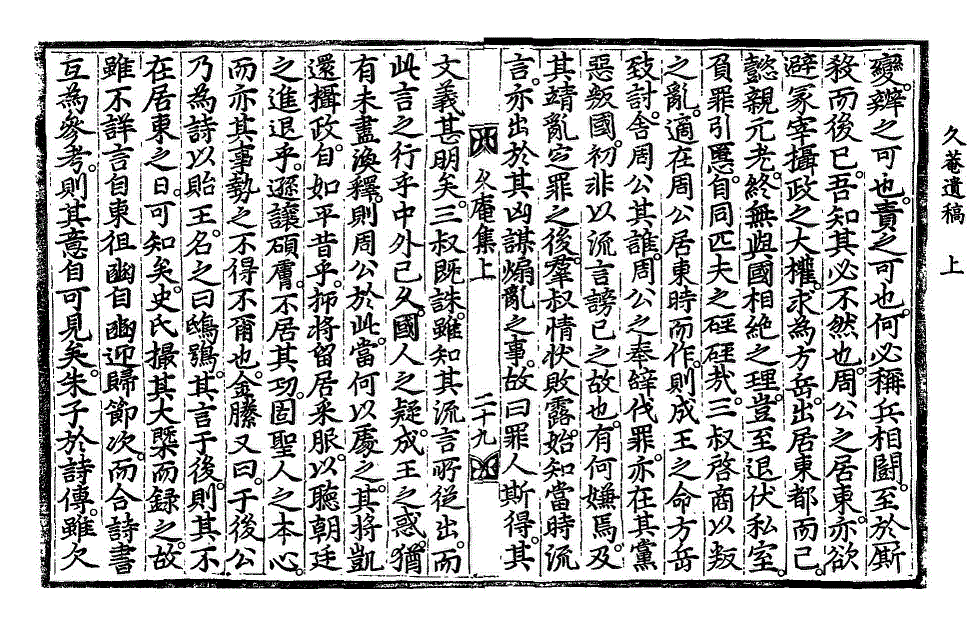 久菴遺稿 上
變。辨之可也。責之可也。何必稱兵相鬪。至於厮
殺而後已。吾知其必不然也。周公之居東。亦欲
避冢宰攝政之大權。求為方岳。出居東都而已。
懿親元老。終無與國相絶之理。豈至退伏私室。
負罪引慝。自同匹夫之硜硜哉。三叔啓商以叛
之亂。適在周公居東時而作。則成王之命方岳
致討。舍周公其誰。周公之奉辭伐罪。亦在其黨
惡叛國。初非以流言謗已之故也。有何嫌焉。及
其靖亂定罪之後。羣叔情状敗露。始知當時流
言。亦出於其凶謀煽亂之事。故曰罪人斯得。其
久庵集上 二十九
文義甚明矣。三叔既誅。雖知其流言所從出。而
此言之行乎中外已久。國人之疑。成王之惑。猶
有未盡渙釋。則周公於此。當何以處之。其將凱
還攝政。自如平昔乎。抑將留居采服。以聽朝廷
之進退乎。遜讓碩膚。不居其功。固聖人之本心
而亦其事勢之不得不爾也。金縢又曰。于後公
乃為詩以貽王。名之曰鴟鴞。其言于後。則其不
在居東之日。可知矣。史氏撮其大槩而録之。故
雖不詳言自東徂豳自豳迎歸節次。而合詩書
互為參考。則其意自可見矣。朱子於詩傳。雖欠